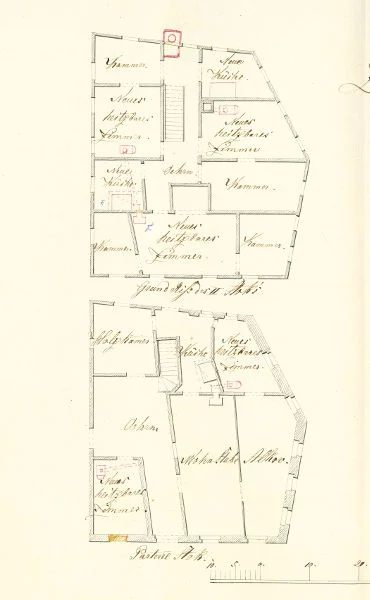 Kammer.
Neue
Küche.
Neues
heitzbares
Zimmer.
Neues
heitzbares
Zimmer
Neue
Küche.
Oehrn
Kammer.
Neues
heitzbares
Zimmer.
Kammer
Kammer.
Grundriß des II Stoks
Holz Kamer
Küche
Neues
heitzbares
Zimmer.
Oehrn
Wohn Stube
Alkov.
Neues
heitzbares
Zimmer.
Parterre Stok.
10. 5. 0. 10. 20.